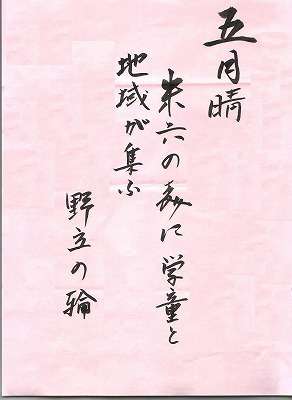 五月晴
朱六のに学童と
地域が集ふ
野立の輪